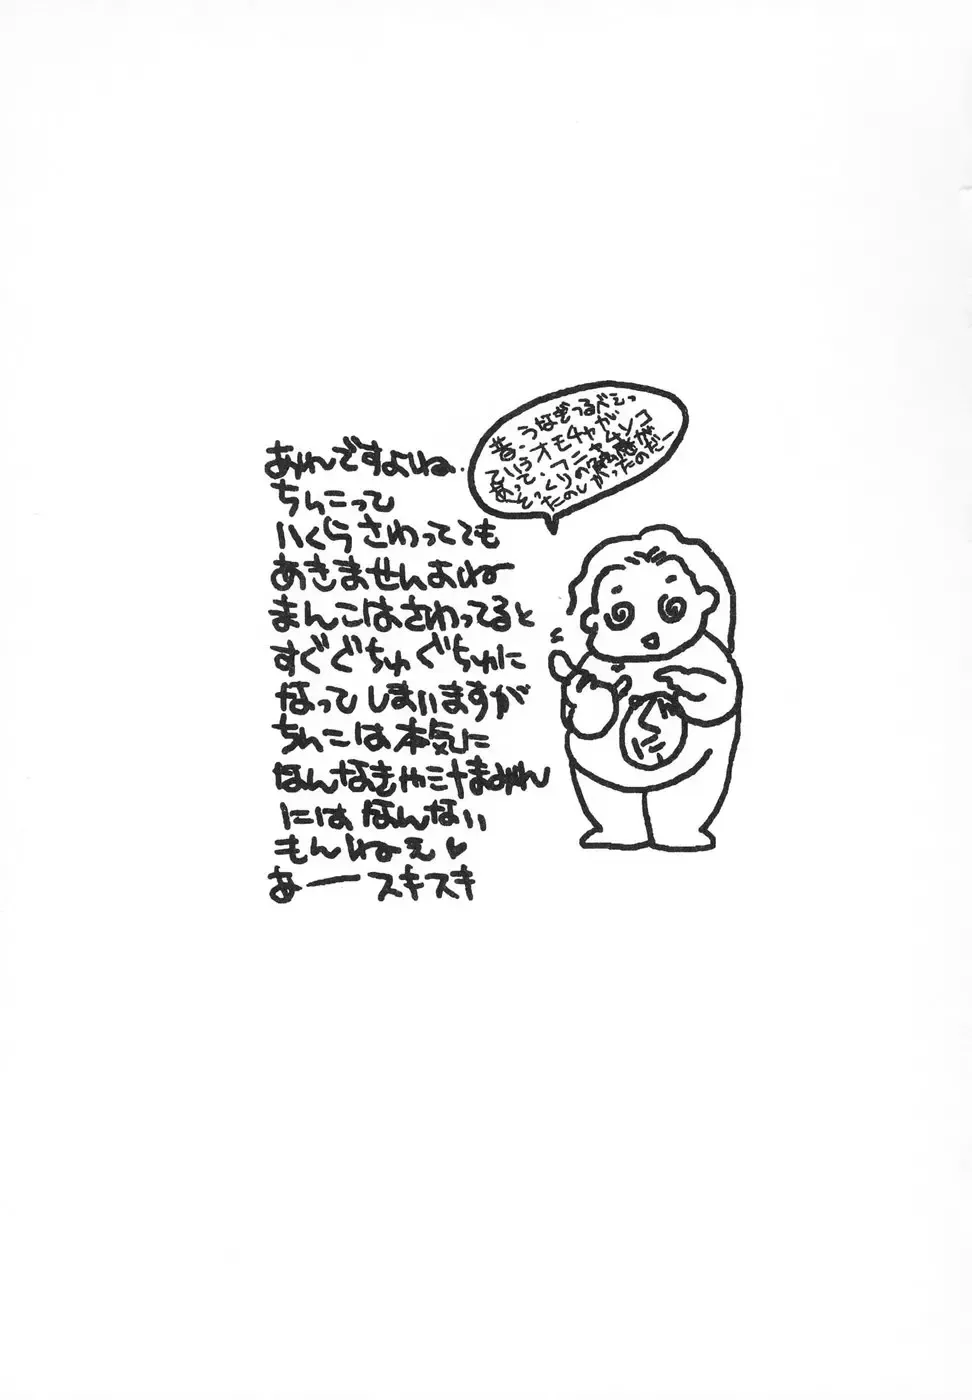 あれですよね
ちんこって
いくらさわってても
あきませんよね
まんこはさわってると
すぐぐちゅぐちゅに
なってしまいますが
ちんこは本気に
なんなきゃ汁まみれ
にはなんない
もんねえ♥
あースキスキ
昔、うなぞうるべえっ
ていうオモチャが
あって、フニャムンコ
そっくりの触感が
たのしかったのだー